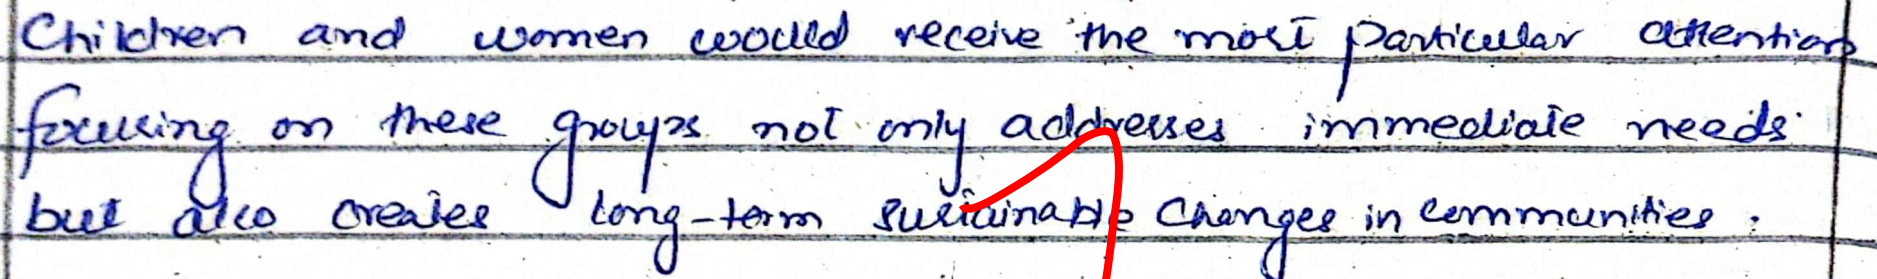 Children and women would receive the most particular attention
focusing on these groups not only addresses immediate needs
but also creates long-term sustainable changes in communities.